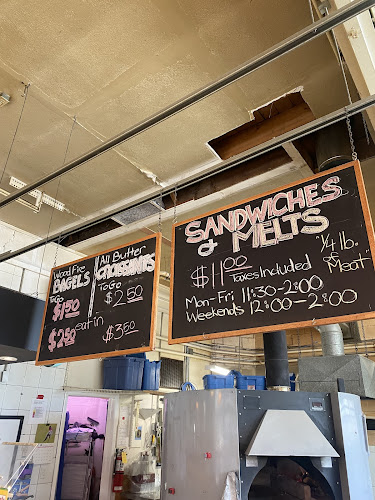 Wood Fire
BAGELS
ToGo
$1.50
$2.50 eat in
All Butter
CROISSANTS
ToGo
$2.50
$3.50
SANDWICHES
& MELTS
$11.00 Taxes Included
"1/4 lb.
of
Meat"
Mon-Fri 11:30-2:00
Weekends 12:00-2:00